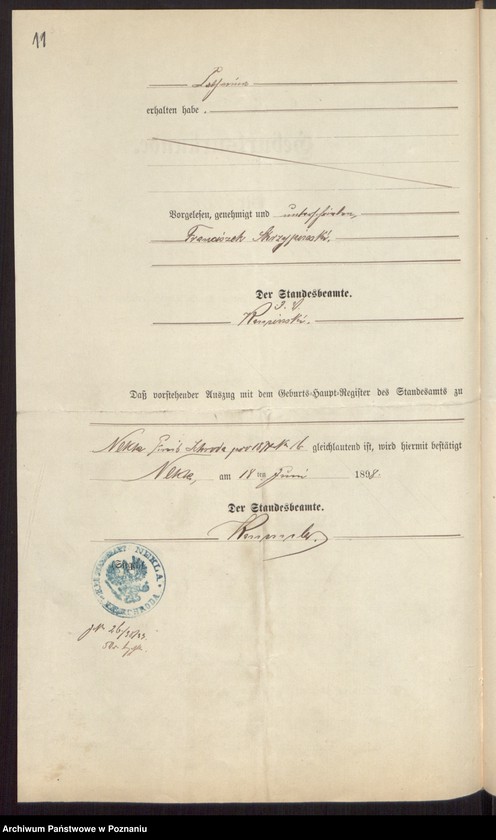 11
Catharina
erhalten habe.
Vorgelesen, genehmigt und unterschrieben,
Franciszek Skrzypinski.
Der Standesbeamte.
J. V.
Daß vorstehender Auszug mit dem Geburts-Haupt-Register des Standesamts zu
Nekla Kreis Schroda pro № 16 gleichlautend ist, wird hiermit bestätigt
Nekla, am 18ten Juni 1898.
Der Standesbeamte.
NEKLA
SCHRODA
Archiwum Państwowe w Poznaniu